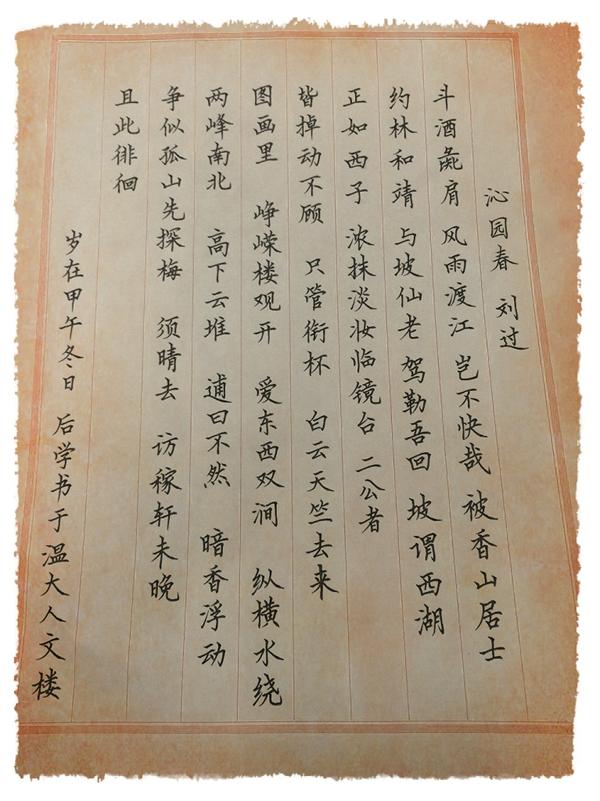 沁园春 刘过
斗酒彘肩 风雨渡江 岂不快哉 被香山居士
约林和靖 与坡仙老 驾勒吾回 坡谓西湖
正如西子 浓抹淡妆临镜台 二公者
皆掉动不顾 只管衔杯 白云天竺去来
图画里 峥嵘楼观开 爱东西双涧 纵横水绕
两峰南北 高下云堆 逋曰不然 暗香浮动
争似孤山先探梅 须晴去 访稼轩未晚
且此徘徊
岁在甲午冬日 后学书于温大人文楼